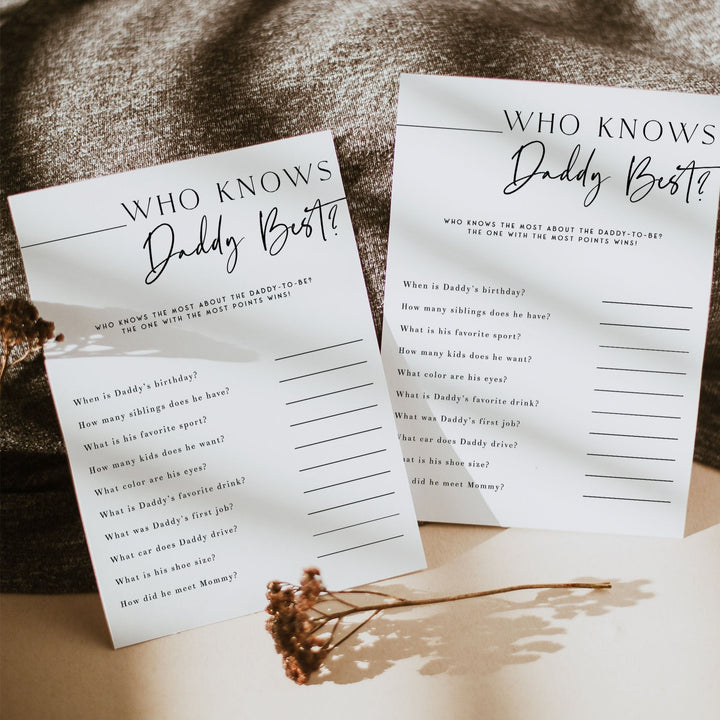 WHO KNOWS
Daddy Best?
WHO KNOWS THE MOST ABOUT THE DADDY-TO-BE?
THE ONE WITH THE MOST POINTS WINS!
When is Daddy's birthday?
How many siblings does he have?
What is his favorite sport?
How many kids does he want?
What color are his eyes?
What is Daddy's favorite drink?
What was Daddy's first job?
What car does Daddy drive?
What is his shoe size?
How did he meet Mommy?
WHO KNOWS
Daddy Best?
WHO KNOWS THE MOST ABOUT THE DADDY-TO-BE?
THE ONE WITH THE MOST POINTS WINS!
When is Daddy's birthday?
How many siblings does he have?
What is his favorite sport?
How many kids does he want?
What color are his eyes?
What is Daddy's favorite drink?
What was Daddy's first job?
What car does Daddy drive?
is his shoe size?
did he meet Mommy?